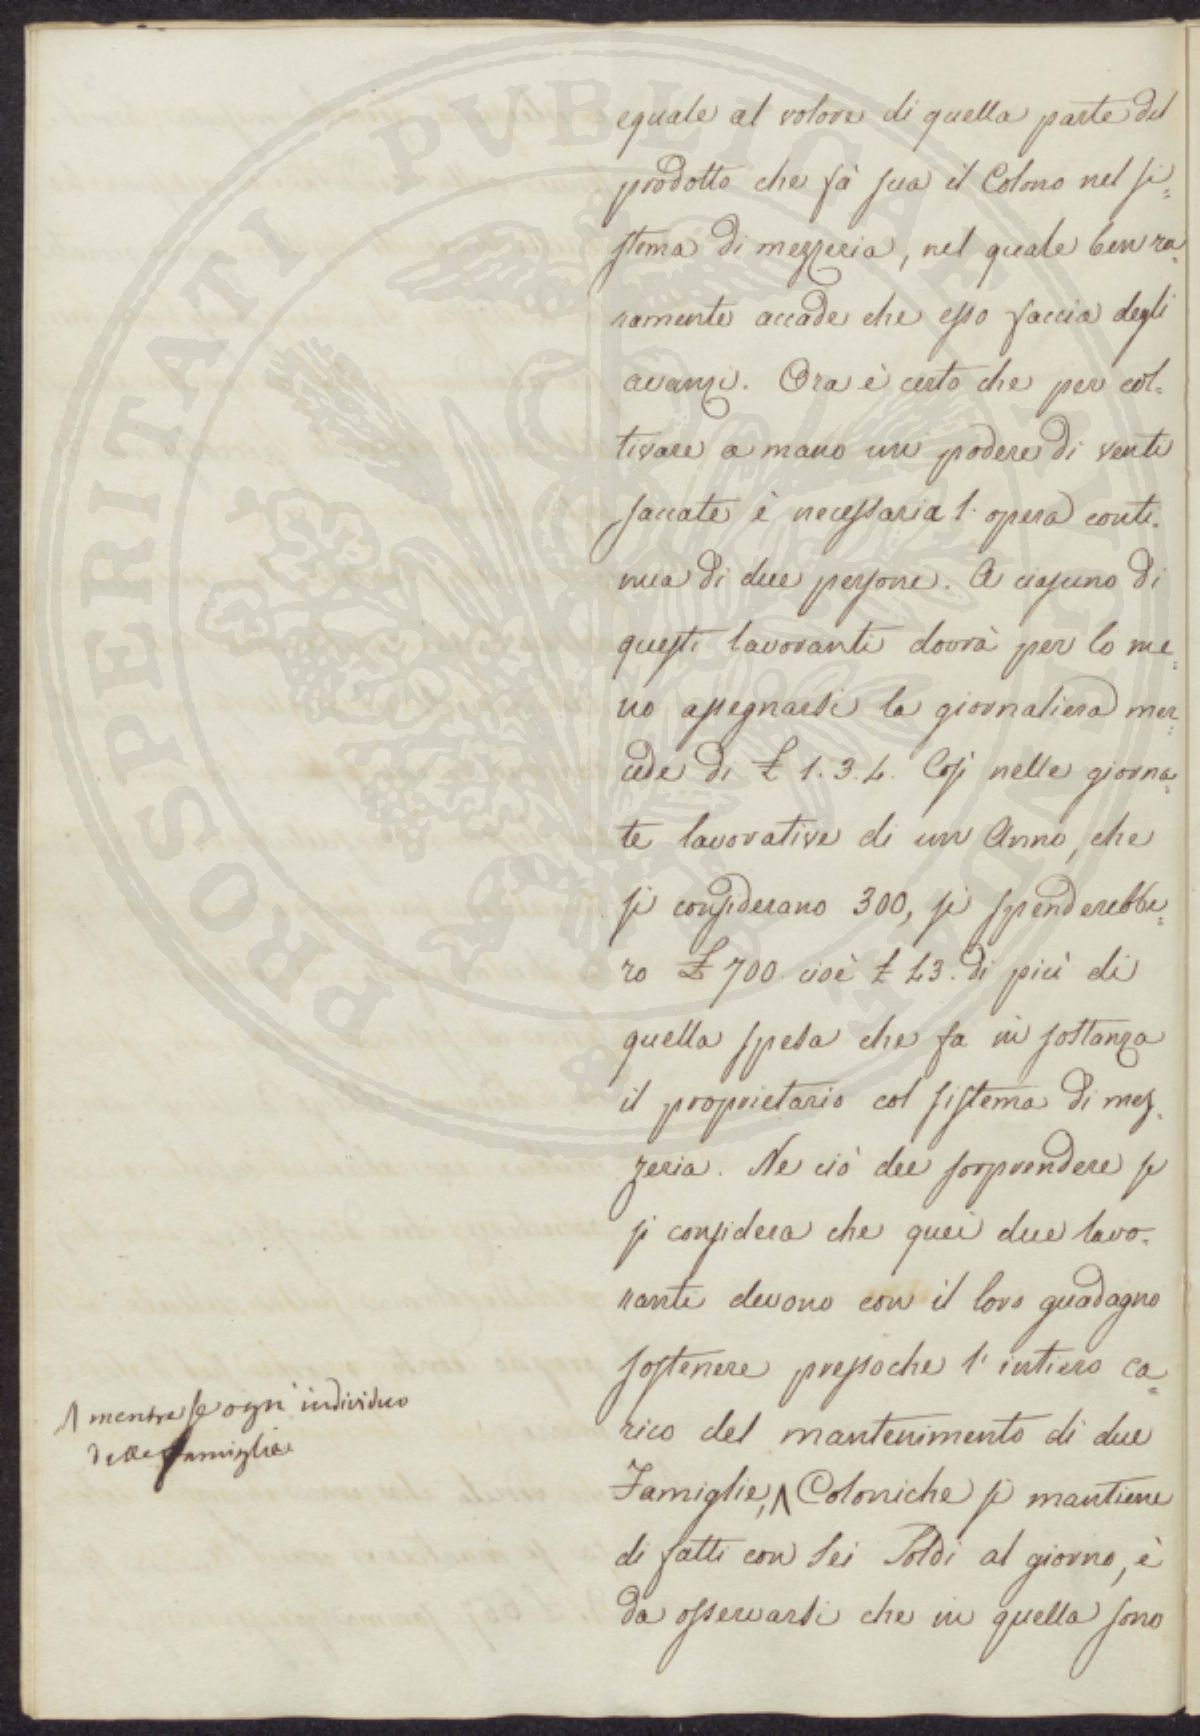 PROSPERITATI PVBLICAE AVGENDAE
eguale al valore di quella parte del
prodotto che fà sua il Colono nel si=
stema di mezzeria, nel quale ben ra=
ramente accade che esso faccia degli
avanzi. Ora è certo che per col=
tivare a mano un podere di venti
saccate è necessaria l'opera conti=
nua di due persone. A ciascuno di
questi lavoranti dovrà per lo me=
no assegnarsi la giornaliera mer=
cede di £ 1. 3. 4. Così nelle giorna=
te lavorative di un Anno, che
si considerano 300, si spenderebbe=
ro £ 700 cioè £ 43. di più di
quella spesa che fa in sostanza
il proprietario col sistema di mez=
zeria. Ne ciò dee sorprendere se
si considera che quei due lavo=
ranti devono con il loro guadagno
sostenere pressoche l'intiero ca=
rico del mantenimento di due
Famiglie, ʌ Coloniche si mantiene
di fatti con sei Soldi al giorno, è
da osservarsi che in quella sono
ʌ mentre se ogni individuo
delle famiglie